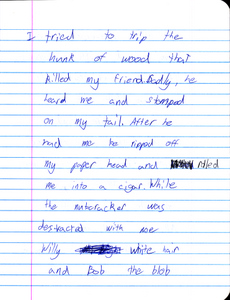 I tried to trip the
hunk of wood that
killed my friend. Sadly, he
heard me and stomped
on my tail. After he
had me he ripped off
my paper head and rolled
me into a cigar. While
the nutcracker was
destracted with me
Willy white hair
and Bob the blob